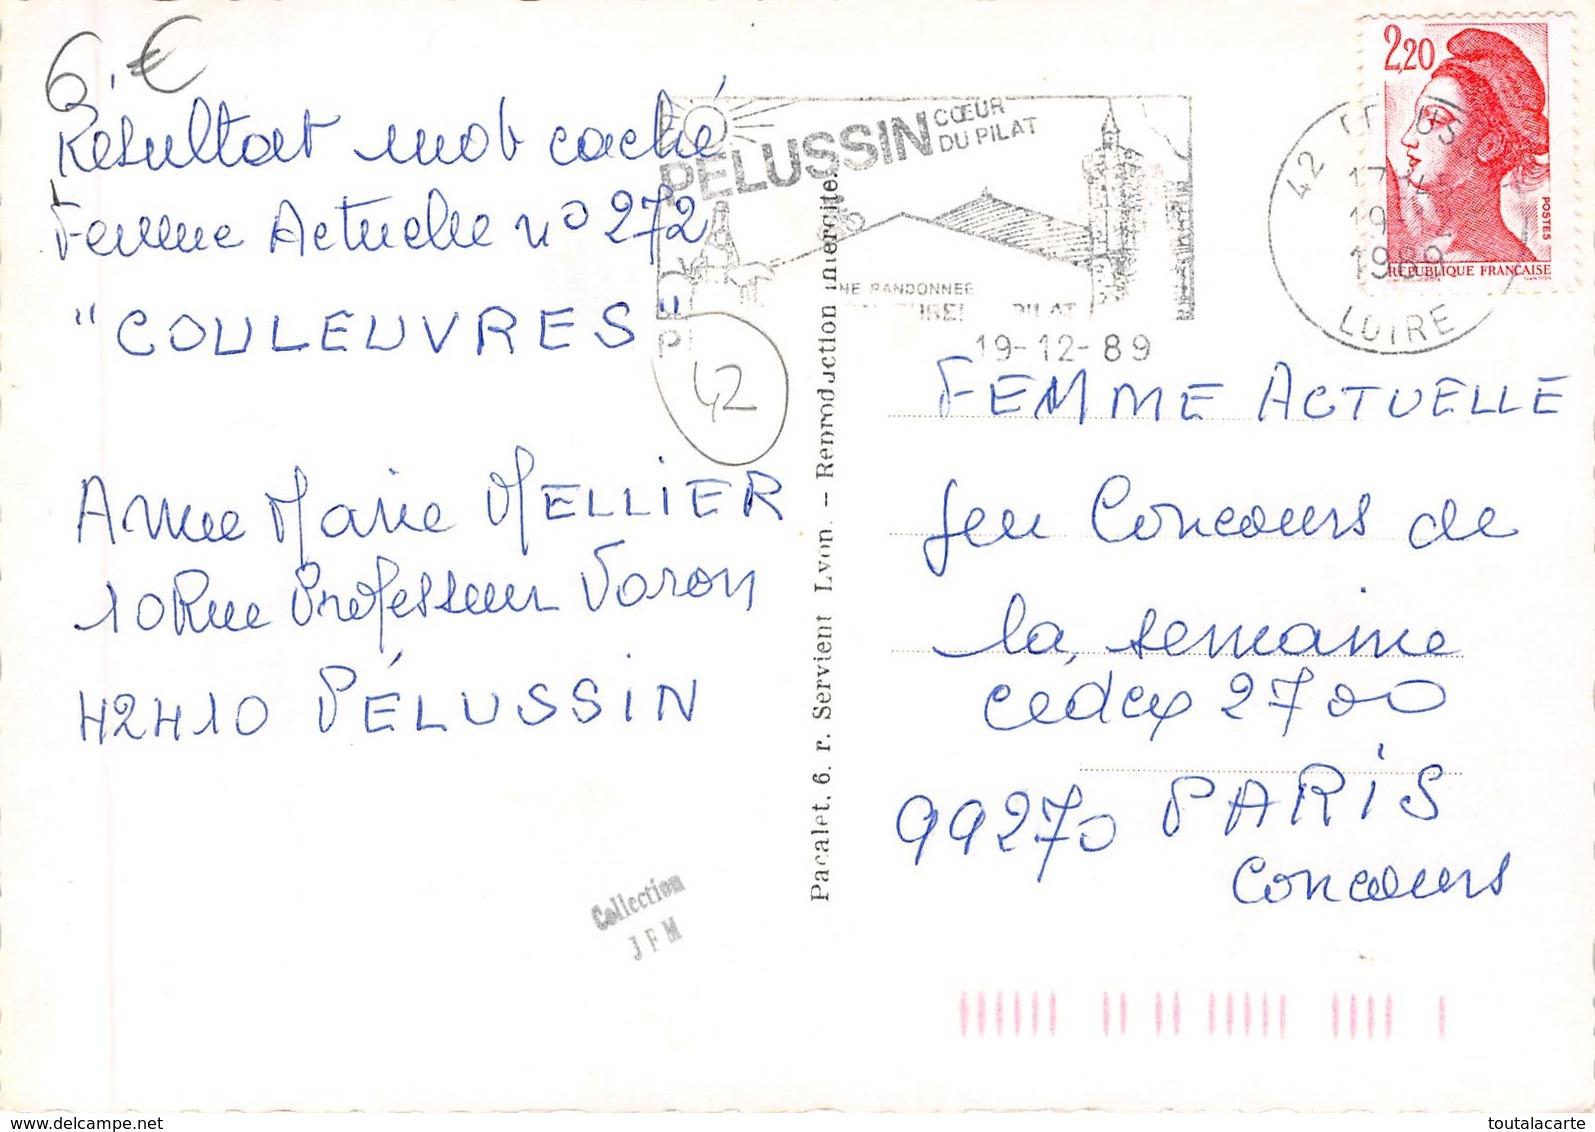 6 €
Résultat mot caché
Femme Actuelle n° 272
"COULEUVRES"
42
Anne Marie MELLIER
10 Rue Professeur Voron
42410 PÉLUSSIN
Collection
JFM
PÉLUSSIN CŒUR
DU PILAT
RANDONNEE
PILAT
19-12-89
42
19-12
1989
LOIRE
2,20
POSTES
REPUBLIQUE FRANÇAISE
Pacalet, 6, r. Servient Lyon. — Reproduction interdite.
FEMME ACTUELLE
Jeu Concours de
la semaine
cedex 2700
99270 PARIS
Concours
www.delcampe.net
toutalacarte